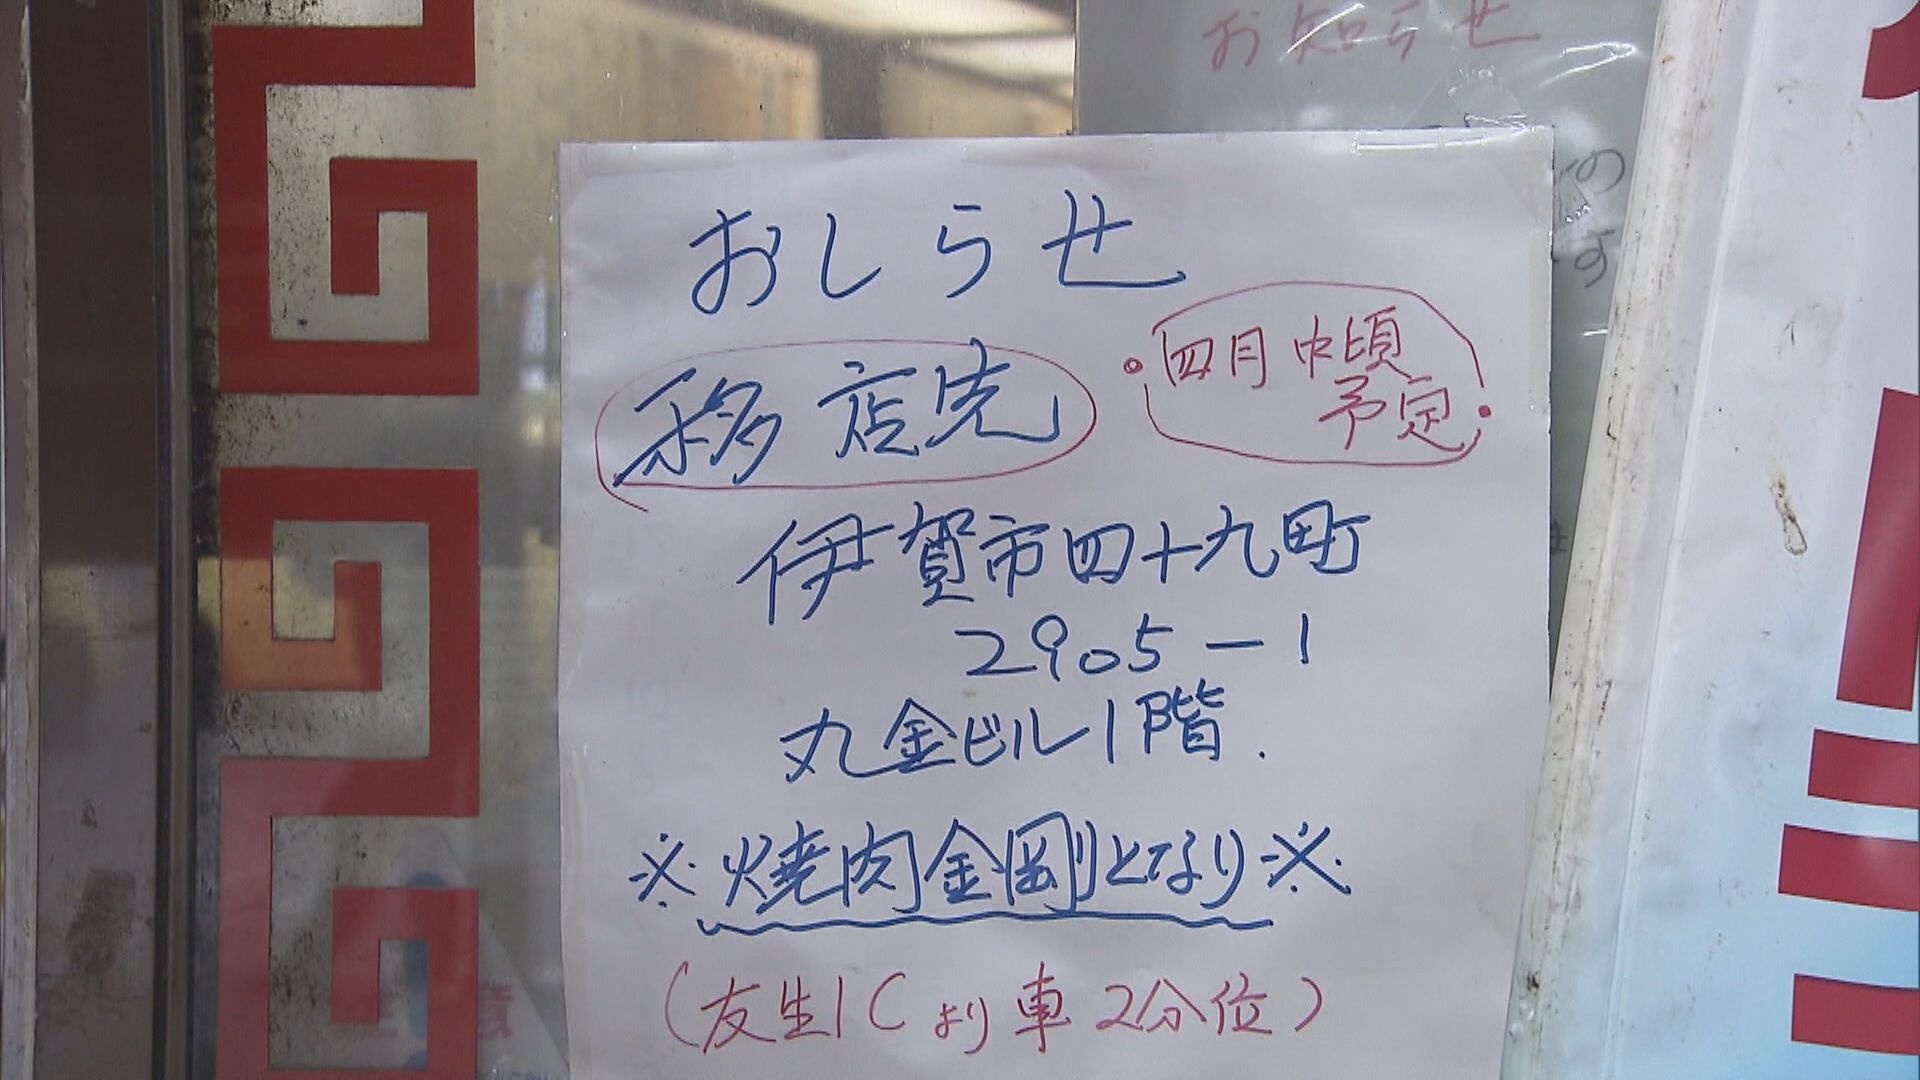 お知らせ
おしらせ
移店先
四月中頃
予定
伊賀市四十九町
2905-1
丸金ビル1階.
※焼肉金剛となり※
(友生ICより車2分位)